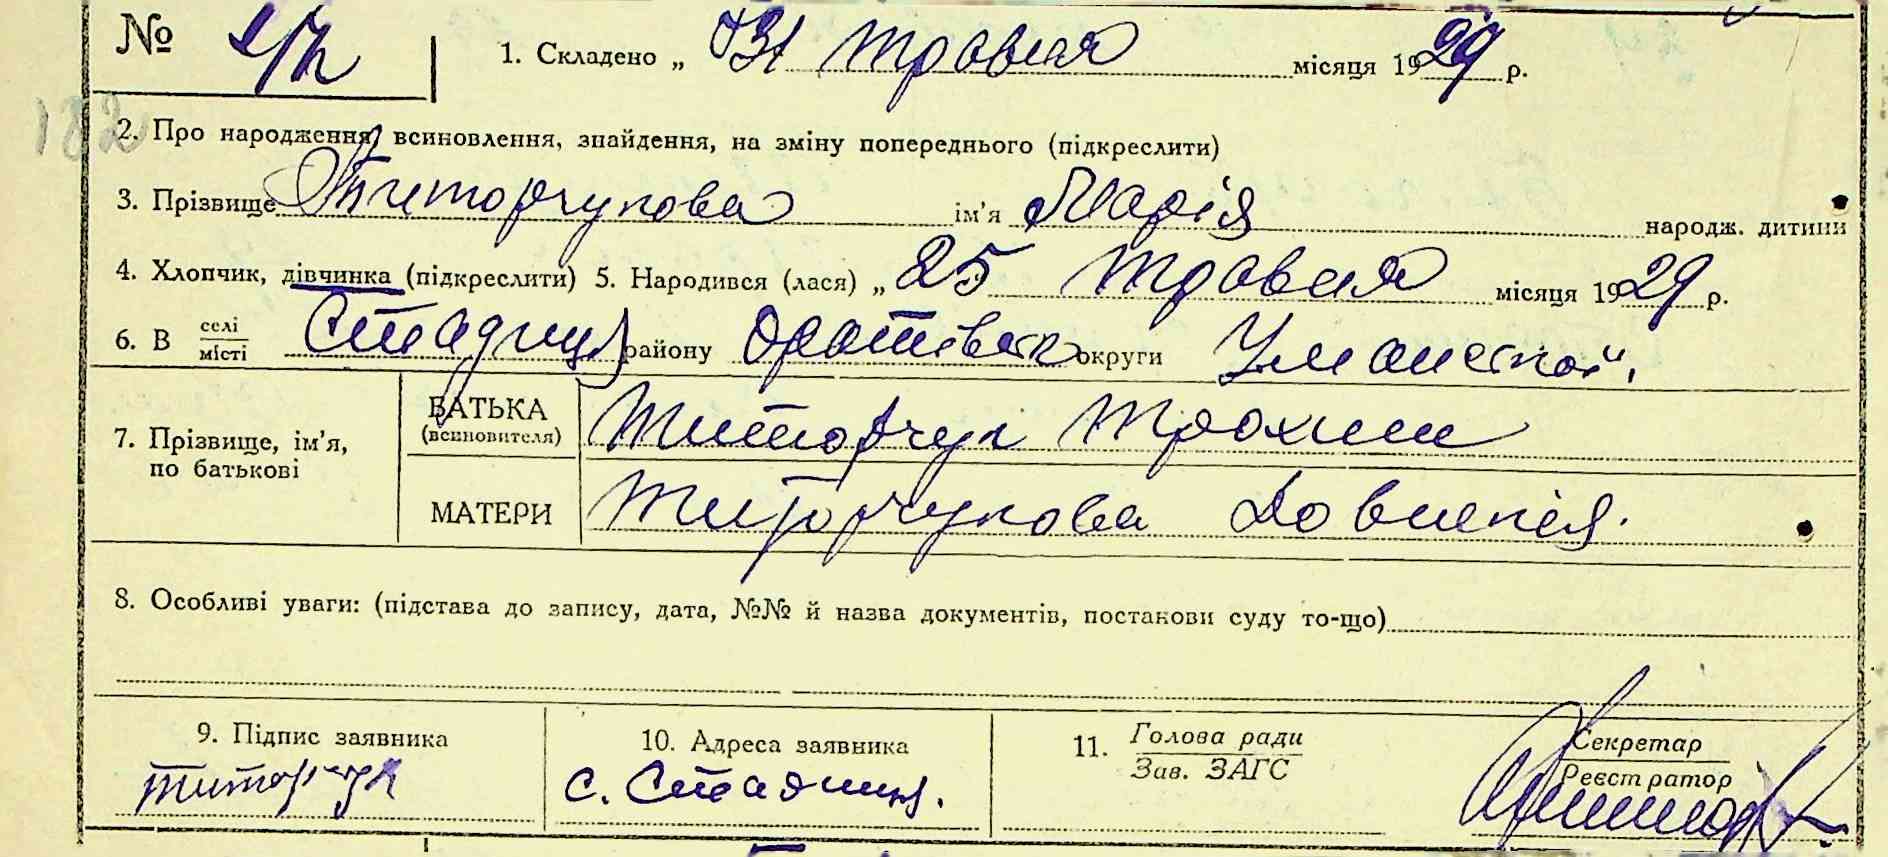 № 1. Складено „ 31 травня місяця 1929 р.
182
2. Про народження, всиновлення, знайдення, на зміну попереднього (підкреслити)
3. Прізвище Титорчукова ім'я Марія народж. дитини
4. Хлопчик, дівчинка (підкреслити) 5. Народився (лася) „ 25 травня місяця 1929 р.
6. В селі місті Стадниця району Оратівськ округи Уманської
7. Прізвище, ім'я, по батькові
БАТЬКА (всиновителя) Титорчук Трохим
МАТЕРИ Титорчукова
8. Особливі уваги: (підстава до запису, дата, №№ й назва документів, постанови суду то-що)
9. Підпис заявника 10. Адреса заявника 11. Голова ради Зав. ЗАГС Секретар Реєстратор
Титорчук с. Стадниця.